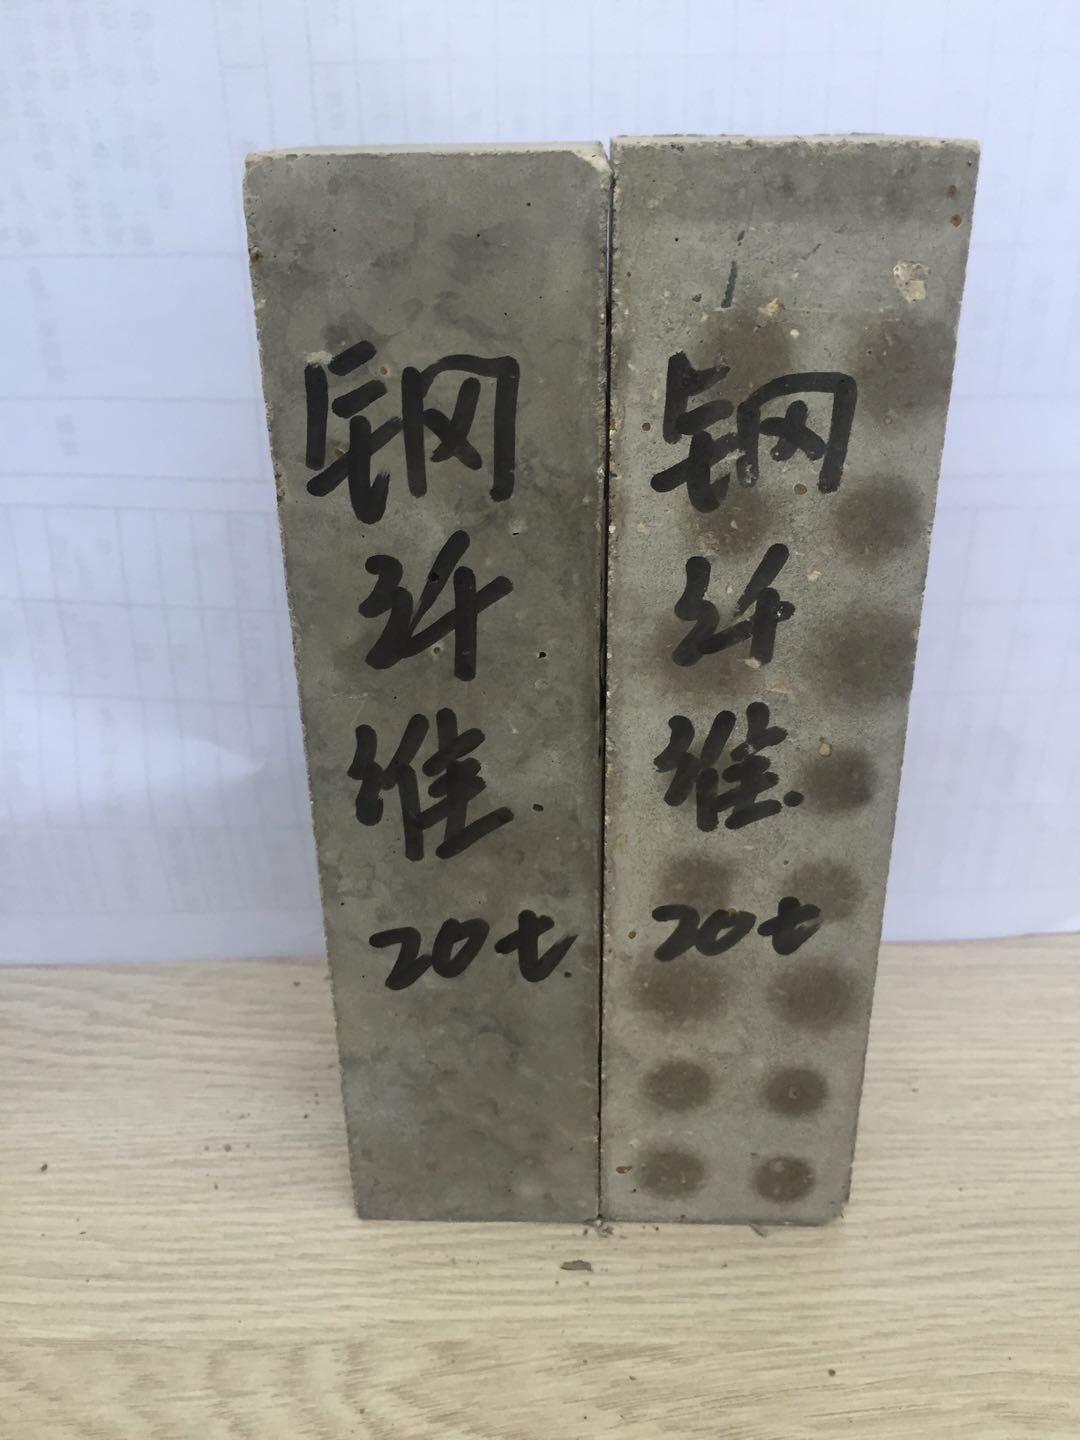 钢
纤
维
20t
钢
纤
维.
20t